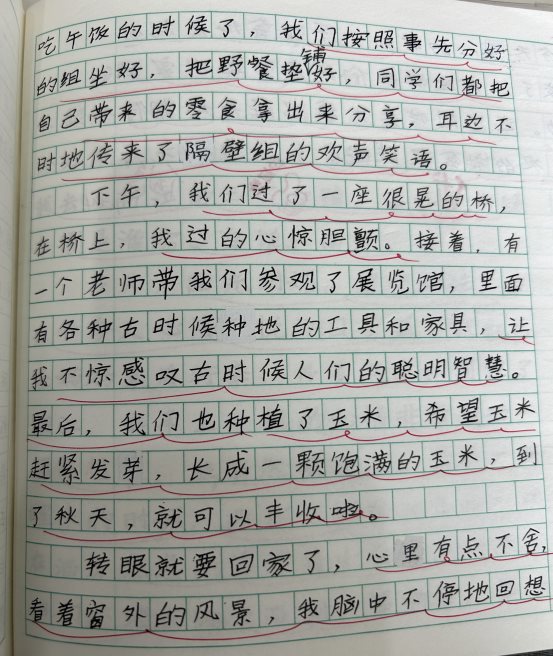 吃午饭的时候了，我们按照事先分好
的组坐好，把野餐垫铺好，同学们都把
自己带来的零食拿出来分享，耳边不
时地传来了隔壁组的欢声笑语。
下午，我们过了一座很晃的桥，
在桥上，我过的心惊胆颤。接着，有
一个老师带我们参观了展览馆，里面
有各种古时候种地的工具和家具，让
我不惊感叹古时候人们的聪明智慧。
最后，我们也种植了玉米，希望玉米
赶紧发芽，长成一颗饱满的玉米，到
了秋天，就可以丰收啦。
转眼就要回家了，心里有点不舍，
看着窗外的风景，我脑中不停地回想